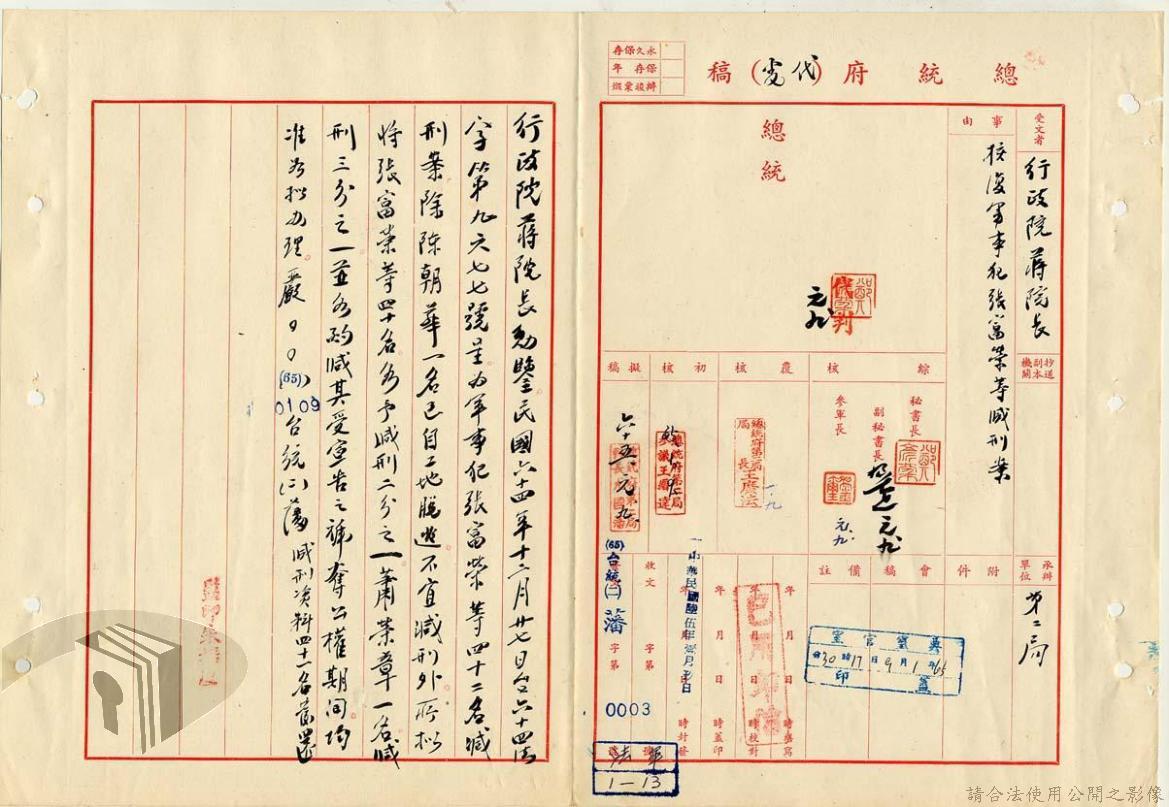 總統府(代電)稿
永久保存
保存 年
辦後彙銷
受文者
行政院蔣院長
抄送副本機關
事由
核復軍事犯張富榮等減刑案
總統
元九
綜核
秘書長
副秘書長
參軍長
元九
元、九
覆核
總統府第二局局長
一、九
初核
擬稿
六十五、元、九
承辦單位
第二局
附件
會稿
備註
年 月 日 時繕寫
年 月 日 時校對
年 月 日 時蓋印
年 月 日 時封發
收文 字第
(65)台統(二)藩字第
0003
軍法
1-13
行政院蔣院長勛鑒民國六十四年十二月廿七日台六十四法
字第九六七七號呈為軍事犯張富榮等四十二名減
刑案除陳朝華一名已自工地脫逃不宜減刑外所擬
將張富榮等四十名各予減刑二分之一蕭榮章一名減
刑三分之一並各酌減其受宣告之褫奪公權期間均
准如擬辦理。嚴○○(65)0109台統(二)藩減刑資料四十一名蓋還
請合法使用公開之影像